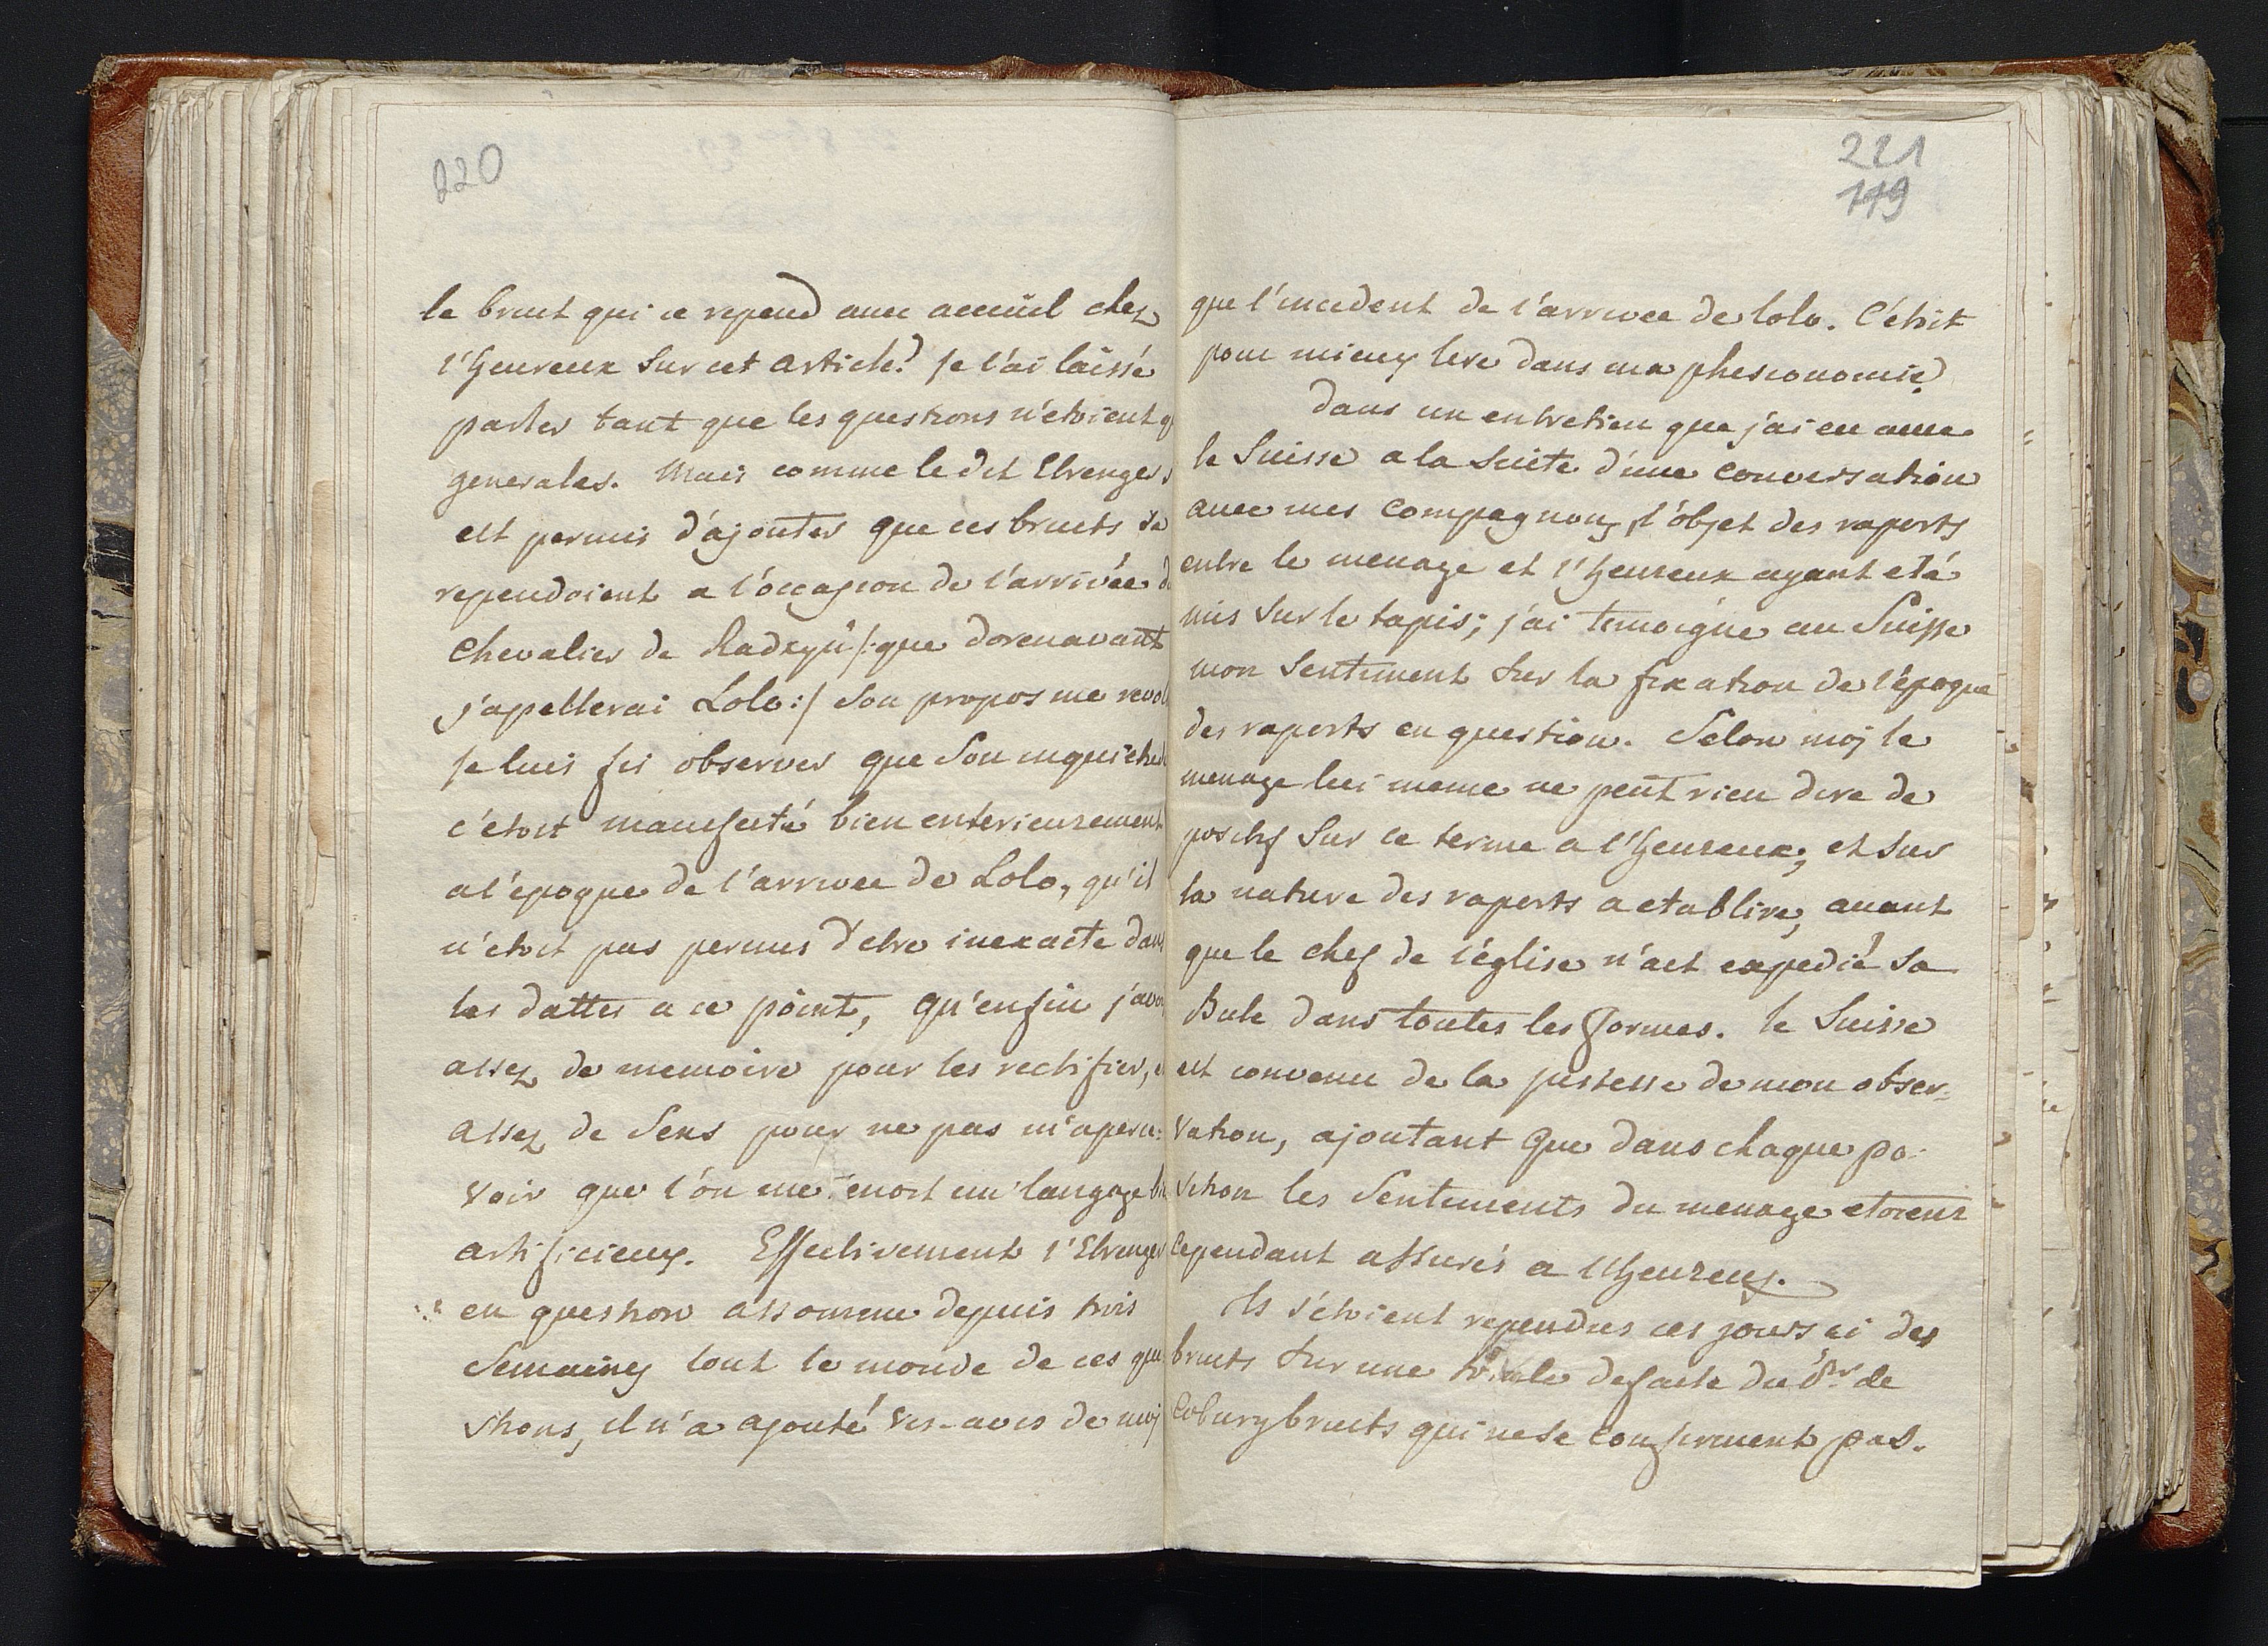 220
le bruit qui ce repend avec accuïel chez
l'heureux Sur cet article? Je l'ai laissé
parler tant que les questions n'etoient q
generales. Mais comme le dit Etrenger s
est permis d'ajouter que ces bruits se
rependoient a l'occasion de l'arrivée d
Chevalier de /:que dorenavant
j'apellerai Lolo:/ Son propos me revol
Je luis fis observer que Son inquietud
c'etoit manifesté bien enterieurement
a l'epoque de l'arrivee de Lolo, qu'il
n'etoit pas permis d'etre inexacte dans
les dattes a ce point, qu'enfin j'avoi
assez de memoire pour les rectifier, e
assez de Sens pour ne pas m'aperce:
voir que l'on me tenoit un langage bi
artificieux. Effectivement l'Etrenger
en question assomme depuis trois
Semaines tout le monde de ces que
stions, il n'a ajouté vis-avis de moj
221
119
que l'incedent de l'arrivee de lolo. C'étoit
pour mieux lire dans ma phesionomie.
Dans un entretien que j'ai eu avec
le Suisse a la Suite d'une conversation
avec mes compagnons, l'objet des raports
entre le menage et l'heureux ayant eté
mis Sur le tapis; j'ai temoigne au Suisse
mon Sentiment Sur la fixation de l'époque
des raports en question. Selon moj le
menage lui meme ne peut rien dire de
positif Sur ce terme a l'heureux; et Sur
la nature des raports a etablire, avant
que le chef de l'église n'ait expedié Sa
Bule dans toutes les formes. le Suisse
est convenu de la justesse de mon obser-
vation, ajoutant que dans chaque po-
sition les Sentiments du menage etoient
Cependant assurés a l'heureux.
Ils s'etoient rependus ces jours ci des
bruits Sur une totale defaite du Pr de
Coburg bruits qui ne se confirment pas.